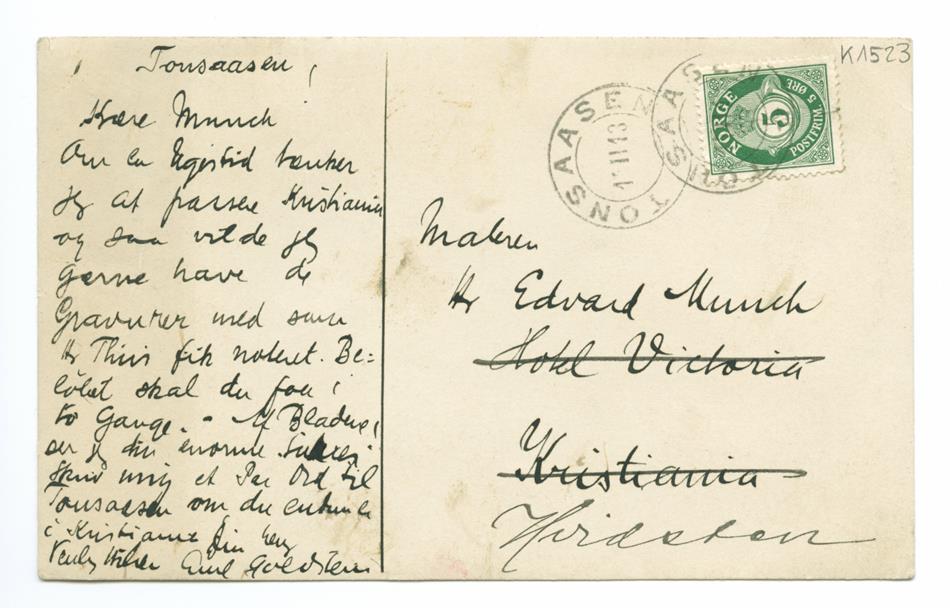 Tonsaasen /
Kære Munch
Om en Ugestid tænker
jeg at passere Kristiania
og saa vilde jeg
gerne have de
Gravurer med som
Hr Thiis fik noteret. Be=
løbet skal du faa i
to Gange. - Af Bladene
ser jg din enorme Succes
Send mig et Par Ord til
Tonsaasen om du
i Kristiania Din
Venlig Hilsen Emil Goldstein
K1523
TONSAASEN
11 II 13
TONSAASEN
NORGE
5
POSTFRIM. 5 ØRE
Maleren
Hr Edvard Munch
Hotel Victoria
Kristiania
Hvidsten